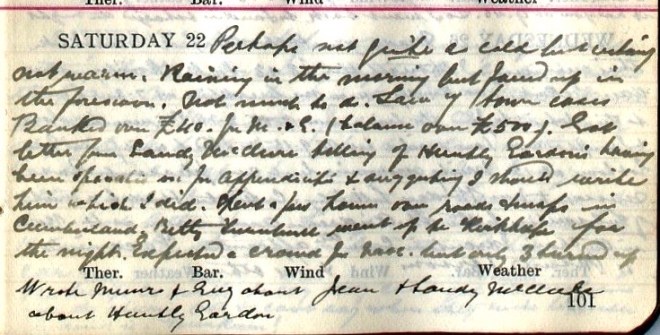 Ther. Bar. Wind Weather
SATURDAY 22 Perhaps not quite a cold but certainly
not warm. Raining in the morning but faired up in
the forenoon. Not much to do. Saw 4 town cases
Banked over £40. for M. & E. (balance over £500). Got
letter from Sandy McClure telling of Huntly Gordon's having
been operated on for appendicitis & suggesting I should write
him which I did. Had a few hours over roads & maps in
Cumberland. Betty Turnbull went up to Kirkhope for
the night. Expected a crowd for but only 3 turned up
Ther. Bar. Wind Weather
Wrote Munro & Eng about Jean & Sandy McClure
about Huntly Gordon
101